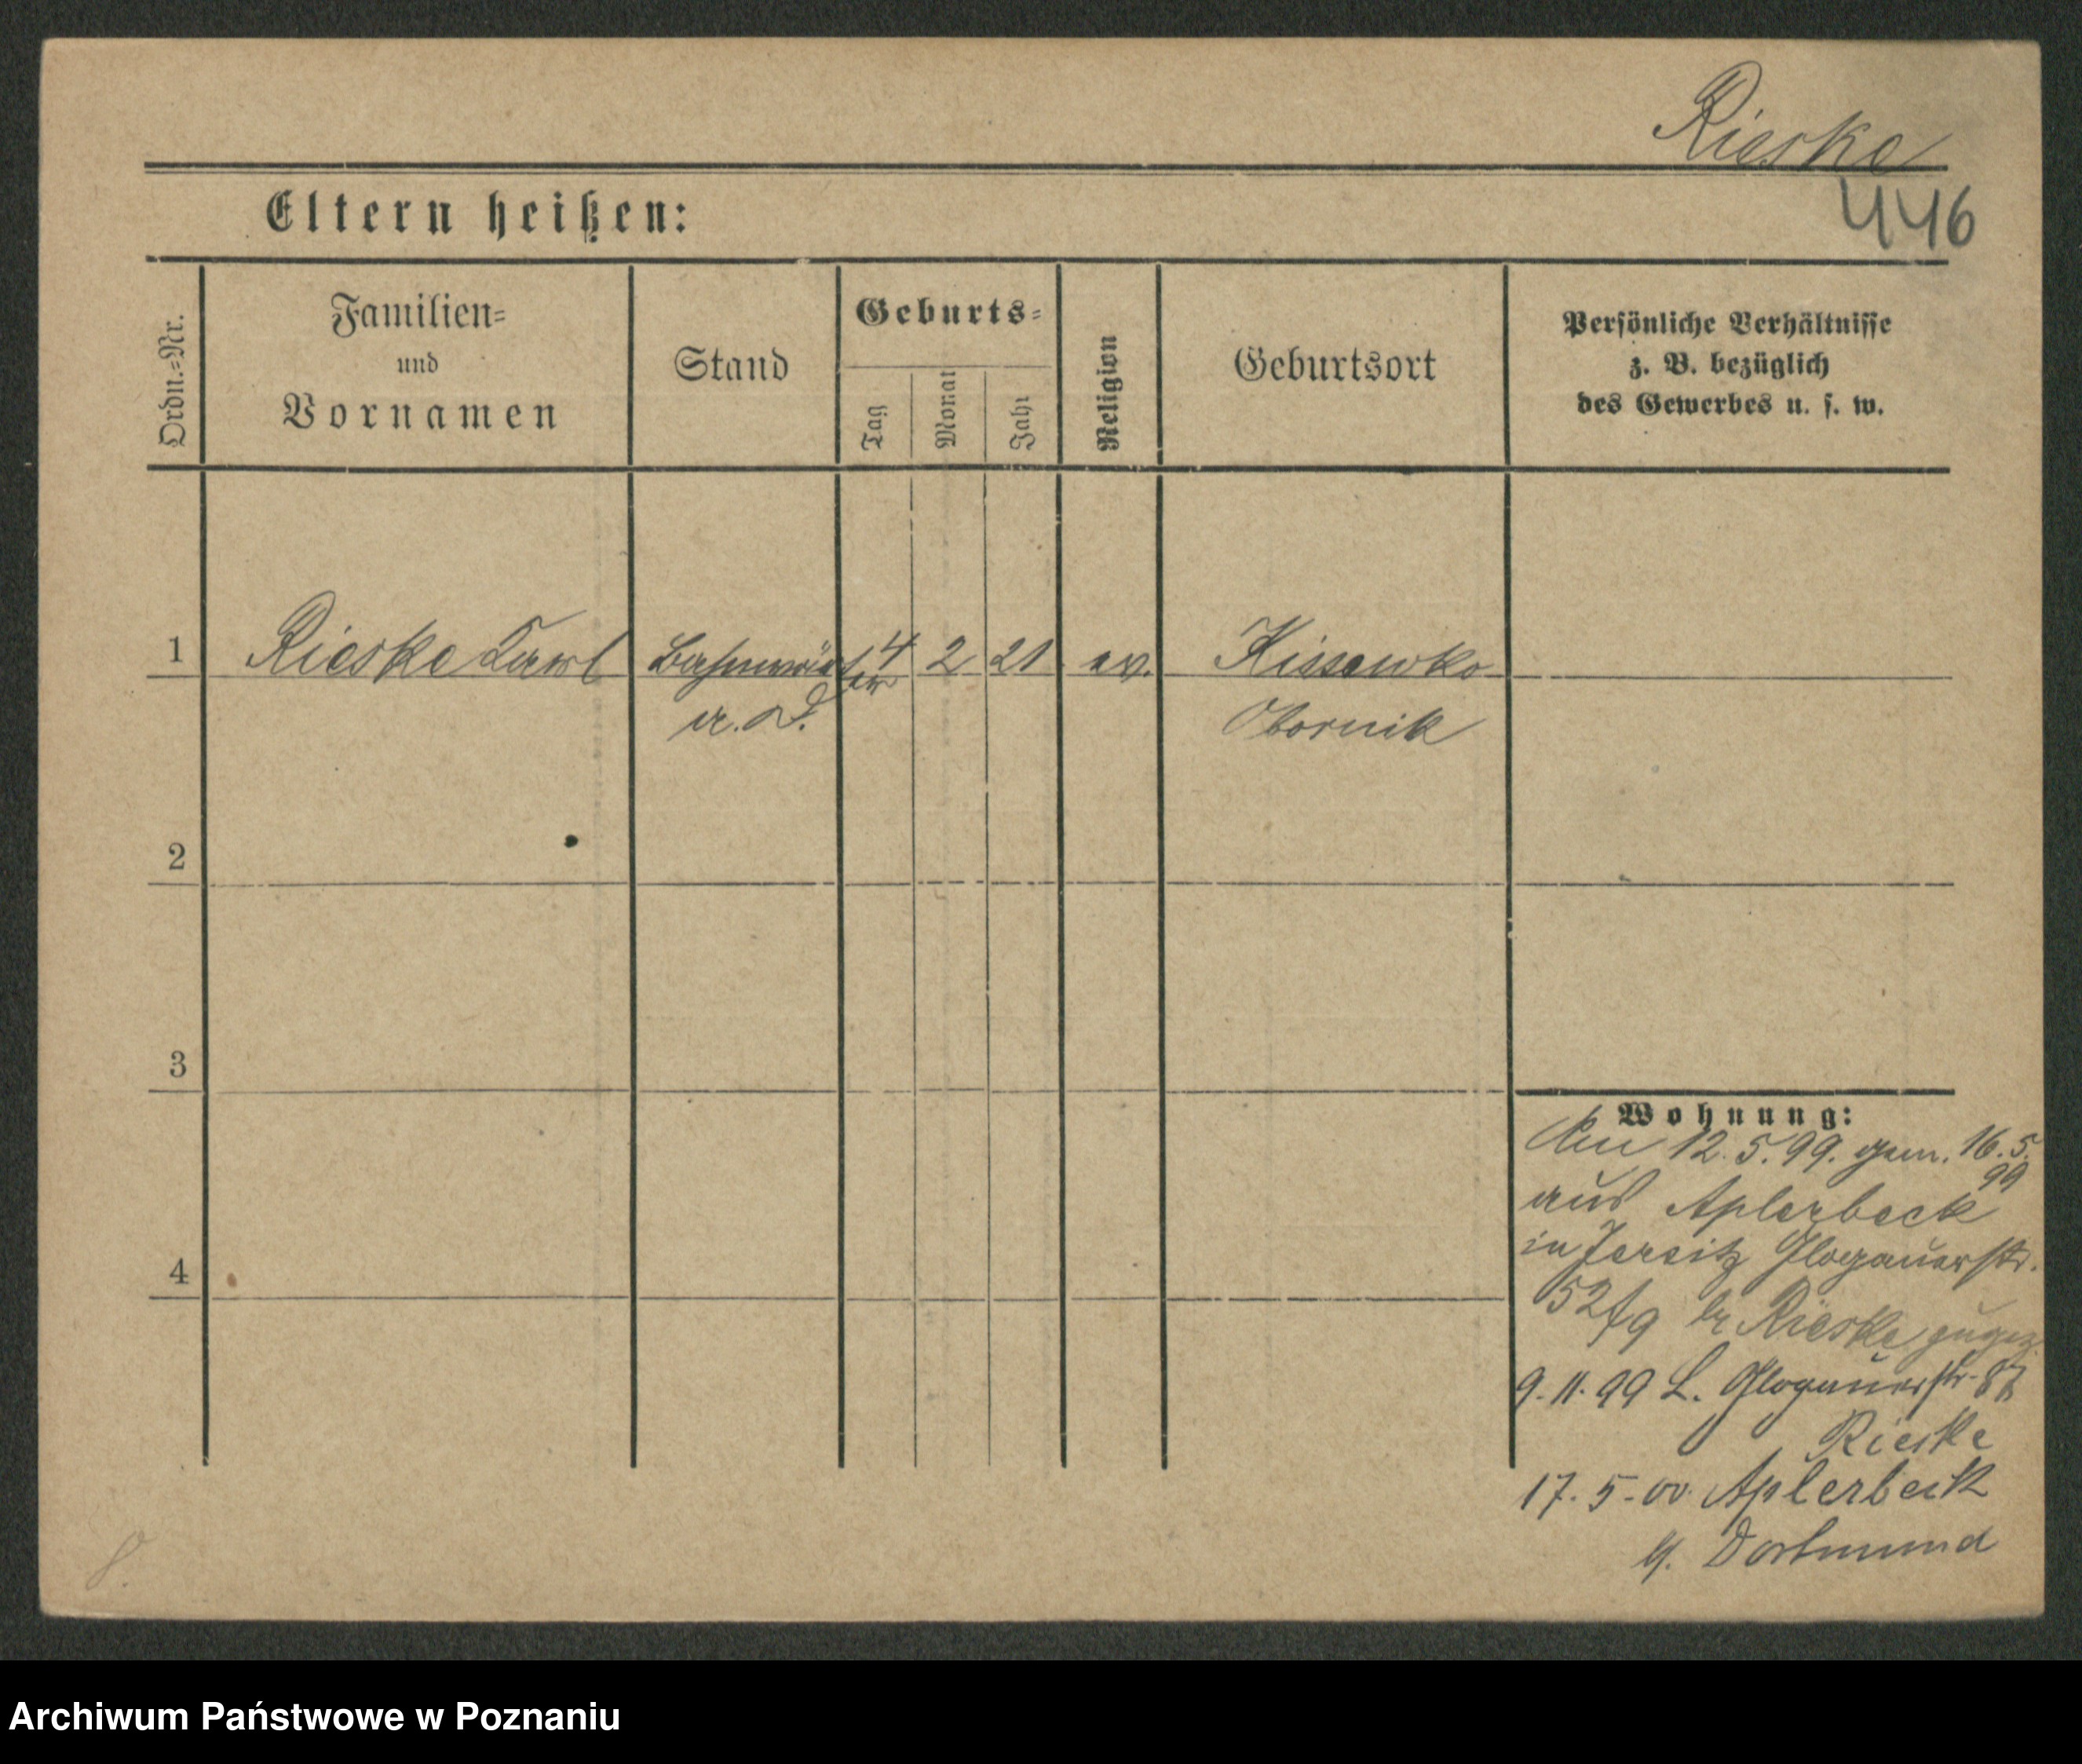 Rieske
446
Eltern heißen:
Ordn.=Nr.
Familien=
und
Vornamen
Stand
Geburts=
Tag
Monat
Jahr
Religion
Geburtsort
Persönliche Verhältnisse
z. B. bezüglich
des Gewerbes u. s. w.
1 Rieske Carl Bahnwärter 4 2 21 ev. Kissewko
a. D. Obornik
2
3
4
Wohnung:
Am 12.5.99. gem. 16.5.
99
aus Aplerbeck
in Jersitz Glogauerstr.
52 b Rieske zugez.
9.11.99 L. Glogauerstr. 87
Rieske
17.5.00. Aplerbeck
Dortmund
8.
Archiwum Państwowe w Poznaniu